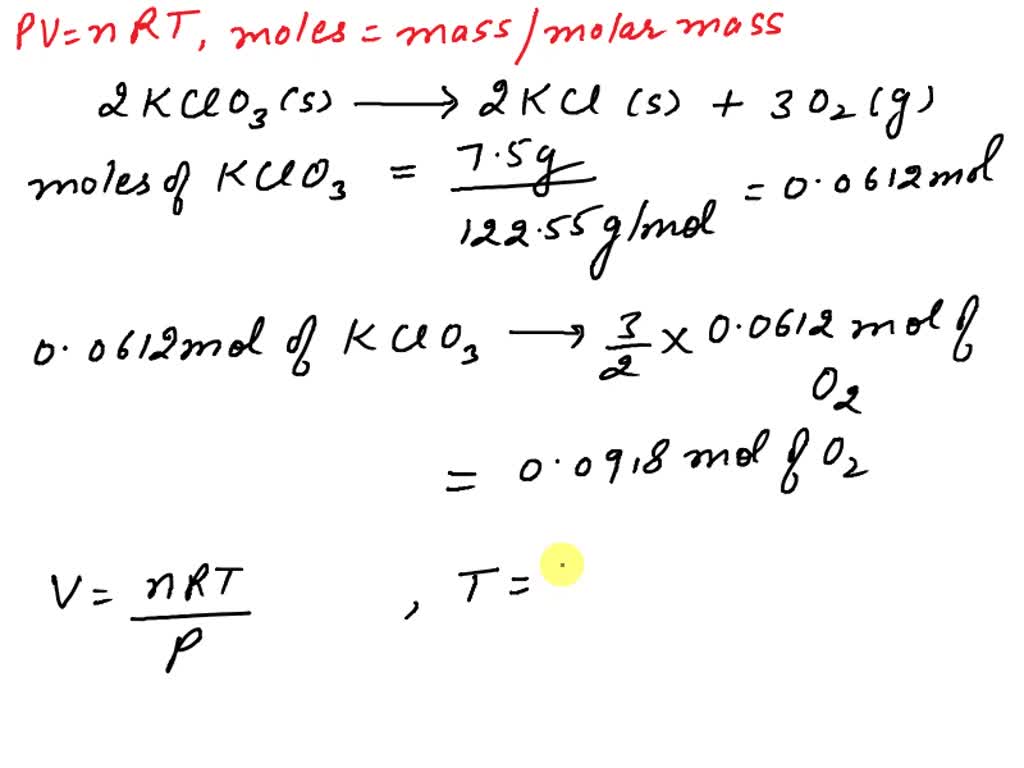 PV=nRT, moles = mass/molar mass
2KClO3(s) ⟶ 2KCl (s) + 3O2(g)
moles of KClO3 = 7.5g / 122.55 g/mol = 0.0612 mol
0.0612 mol of KClO3 ⟶ 3/2 × 0.0612 mol of O2
= 0.0918 mol of O2
V = nRT / P , T =